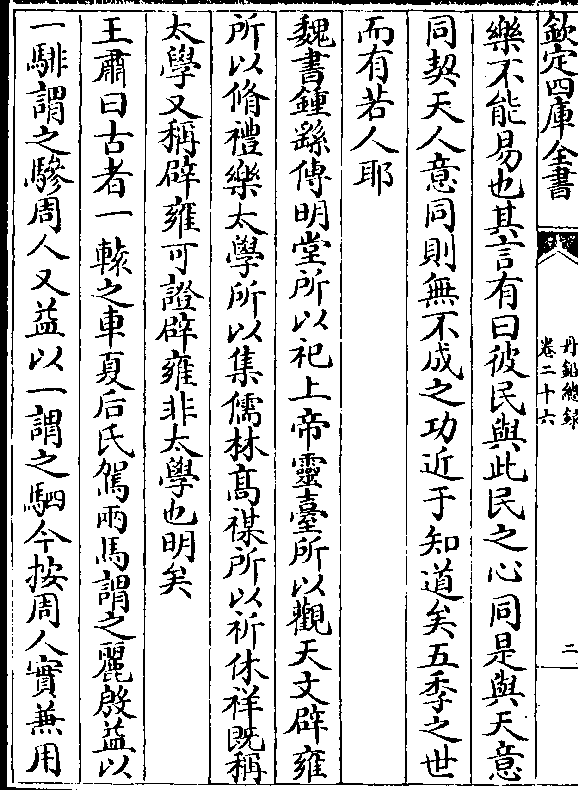 欽定四庫全書
丹鉛總錄
卷二十六
二
樂不能易也其言有曰彼民與此民之心同是與天意
同契天人意同則無不成之功近于知道矣五季之世
而有若人耶
魏書鍾繇傳明堂所以祀上帝靈臺所以觀天文辟雍
所以脩禮樂太學所以集儒林高禖所以祈休祥旣稱
太學又稱辟雍可證辟雍非太學也明矣
王肅曰古者一轅之車夏后氏駕兩馬謂之麗殷益以
一騑謂之驂周人又益以一謂之駟今按周人實兼用